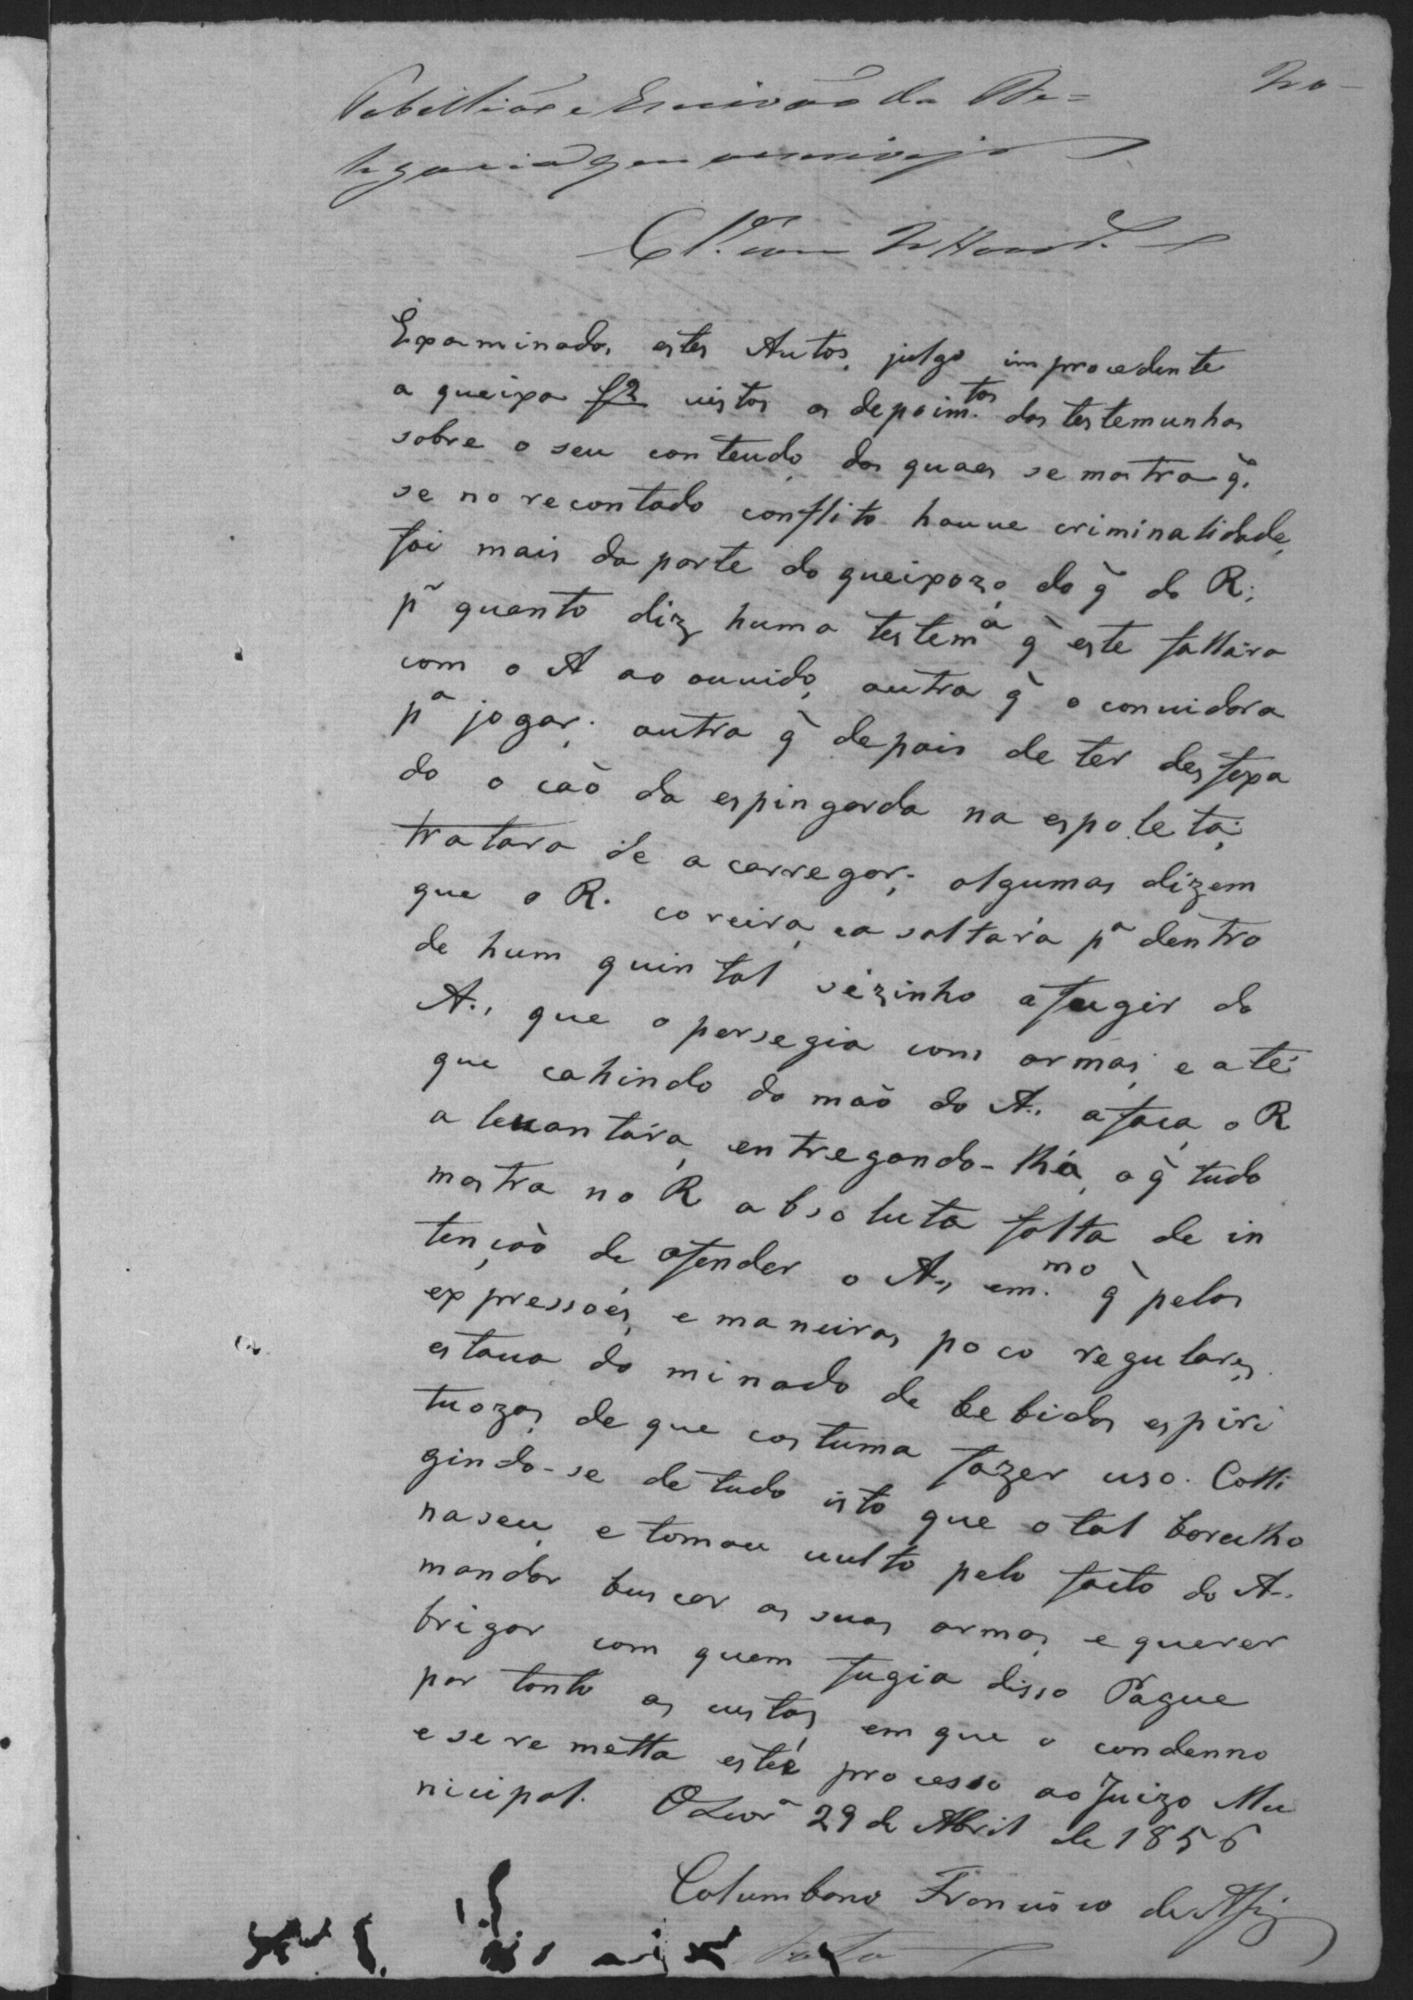 20
Tabellião e Escrivão da De=
legacia que o escrevi
Examinados estes Autos, julgo improcedente
a queixa f2 vistos os depoim.tos das testemunhas
sobre o seu conteudo, dos quaes se mostra q̃
se no recontado conflito houve criminalidade,
foi mais da parte do queixozo, do q̃ do R;
pr quanto diz huma testema q̃ este fallára
com o A ao ouvido, outra q̃ o convidara
pa jogar; outra q̃ depois de ter desfexa
do o caõ da espingarda na espoleta,
tratara de a carregar; algumas dizem
que o R. correira, ea saltara pa dentro
de hum quintal vezinho a fugir do
A., que o persegia com armas, e até
que cahindo da maõ do A. a faca, o R
a levantára, entregando-lha, o q̃ tudo
mostra no R absoluta falta de in
tençaõ de ofender o A., em.mo q̃ pelas
expressoẽs, e maneiras poco regulares
estava dominado de bebidas espiri
tuozas, de que costuma fazer uso. Colli
gindo-se de tudo isto que o tal barulho
nasceu, e tomou vulto pelo facto do A.
mandar buscar as suas armas, e querer
brigar com quem fugia disso Pague
por tanto as custas, em que o condenno
e se remetta este processo ao Juizo Mu
nicipal. 29 de Abril de 1856
Columbano Francisco de Assis